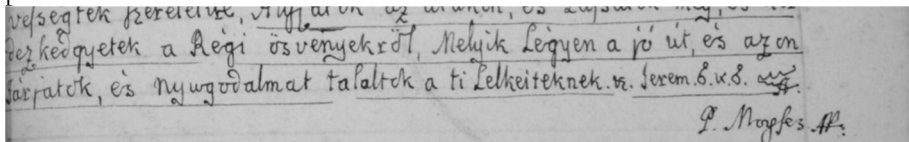 velsegtek szeretetire, Álljatok az utakon, és
dezkedgyetek a Régi ösvényekröl, Melyik Légyen a jó út, és azon
Járjatok, és Nyugodalmat talaltok a ti Lelkeiteknek. Jerem. 6. v. 6.
P. Moyses